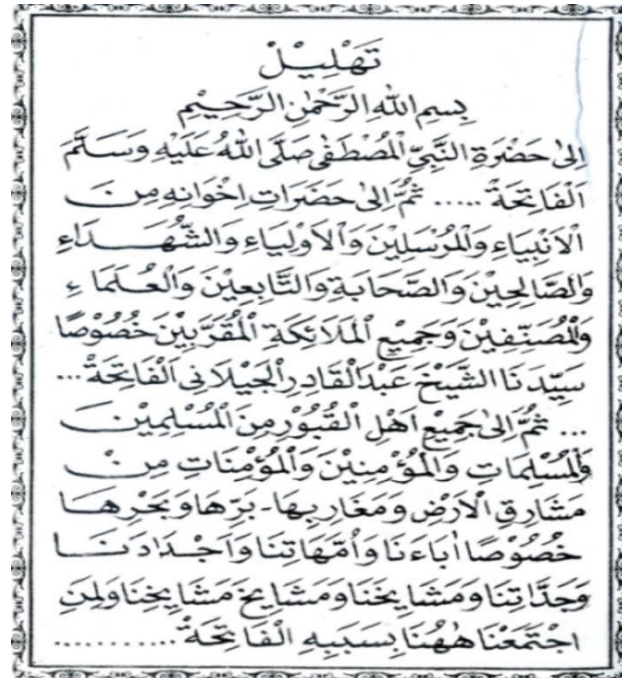 تَهْلِيْلْ
بِسْمِ اللهِ الرَّحْمٰنِ الرَّحِيْمِ
اِلىٰ حَضْرَةِ النَّبِيِّ الْمُصْطَفٰى صَلَّى اللهُ عَلَيْهِ وَسَلَّمَ
اَلْفَاتِحَةْ ..... ثُمَّ اِلىٰ حَضَرَاتِ اِخْوَانِهِ مِنَ
الْاَنْبِيَاءِ وَالْمُرْسَلِيْنَ وَالْاَوْلِيَاءِ وَالشُّهَدَاءِ
وَالصَّالِحِيْنَ وَالصَّحَابَةِ وَالتَّابِعِيْنَ وَالْعُلَمَاءِ
وَالْمُصَنِّفِيْنَ وَجَمِيْعِ الْمَلَائِكَةِ الْمُقَرَّبِيْنَ خُصُوْصًا
سَيِّدَنَا الشَّيْخَ عَبْدَ الْقَادِرِ الْجَيْلَانِى اَلْفَاتِحَةْ ...
... ثُمَّ اِلىٰ جَمِيْعِ اَهْلِ الْقُبُوْرِ مِنَ الْمُسْلِمِيْنَ
وَالْمُسْلِمَاتِ وَالْمُؤْمِنِيْنَ وَالْمُؤْمِنَاتِ مِنْ
مَشَارِقِ الْاَرْضِ وَمَغَارِبِهَا - بَرِّهَا وَبَحْرِهَا
خُصُوْصًا اٰبَاءَنَا وَاُمَّهَاتِنَا وَاَجْدَادَنَا
وَجَدَّاتِنَا وَمَشَايِخَنَا وَمَشَايِخَ مَشَايِخِنَا وَلِمَنِ
اجْتَمَعْنَا هٰهُنَا بِسَبَبِهِ الْفَاتِحَةْ ............